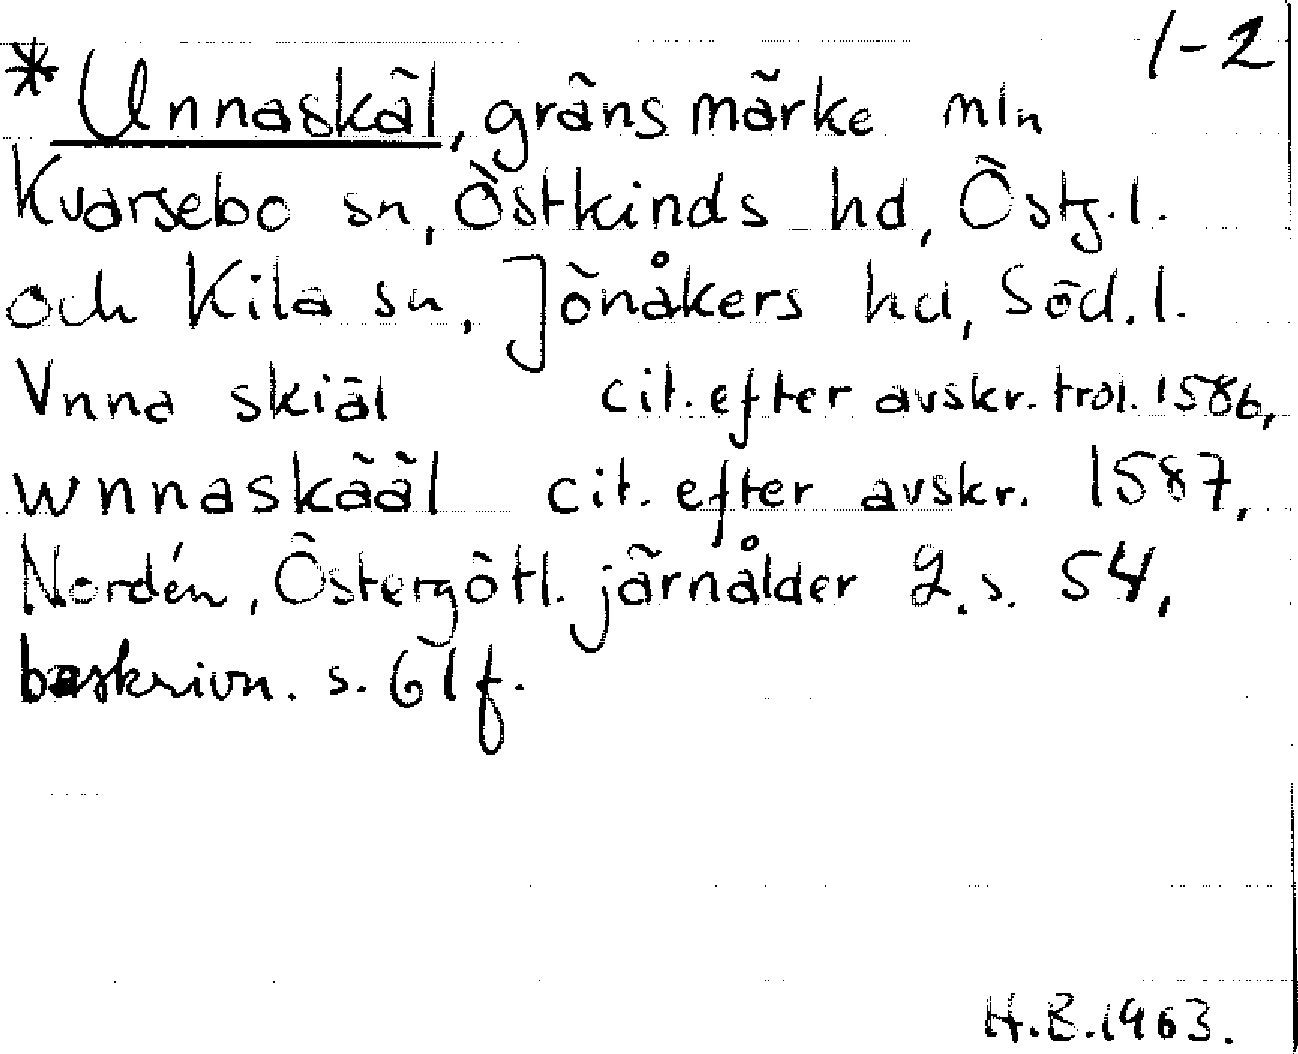 1-2
*Unnaskäl, gränsmärke mln
Kvarsebo sn, Östkinds hd, Östg.l.
och Kila sn, Jönåkers hd, Söd.l.
Vnna skiäl cit. efter avskr. trol. 1586,
wnnaskääl cit. efter avskr. 1587,
Nordén, Östergötl. järnålder 2. s. 54,
beskrivn. s. 61 f.
H.B.1963.